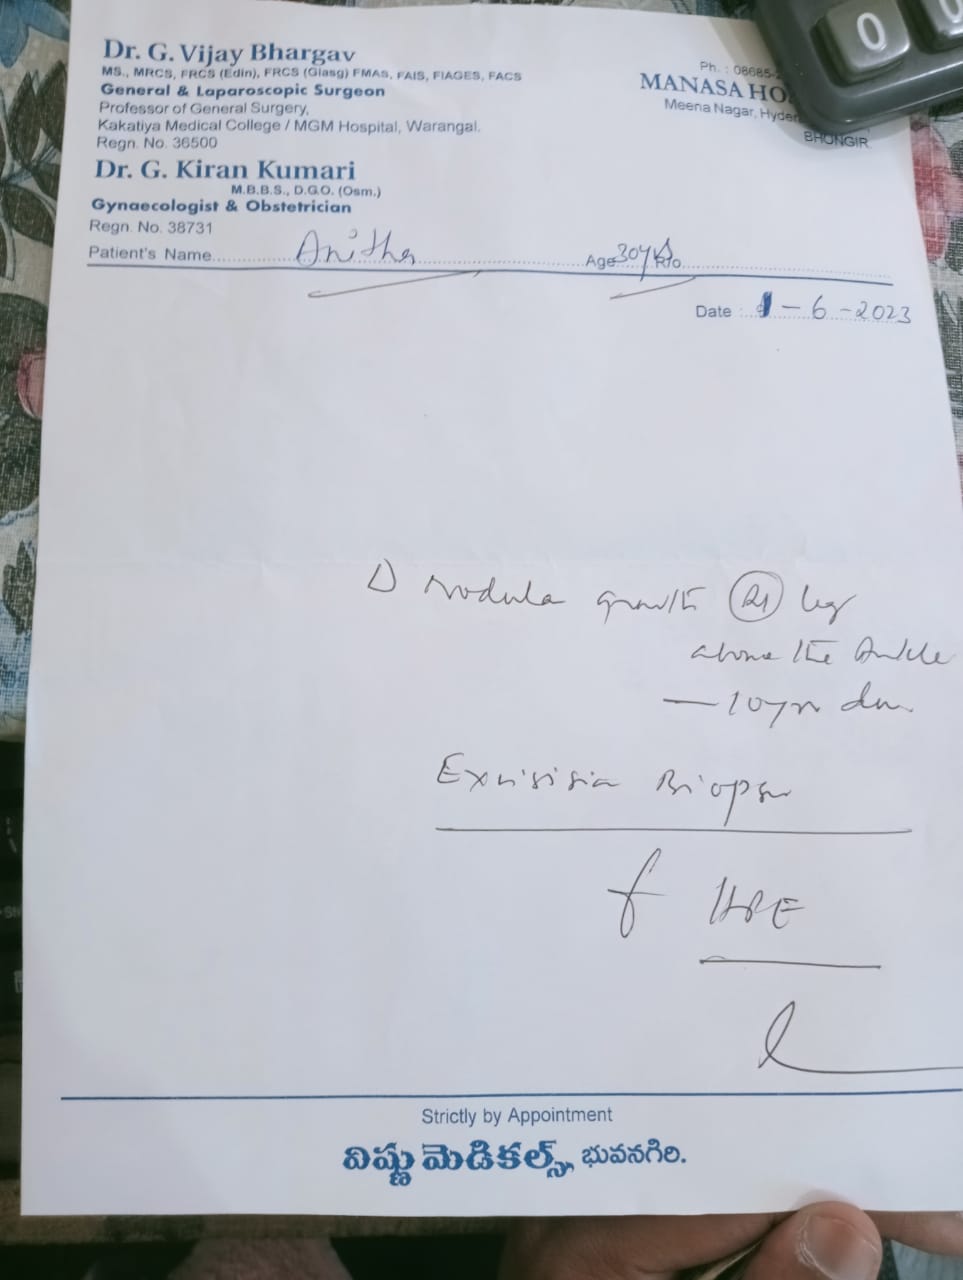 Dr. G. Vijay Bhargav
MS., MRCS, FRCS (Edin), FRCS (Glasg) FMAS, FAIS, FIAGES, FACS
General & Laparoscopic Surgeon
Professor of General Surgery,
Kakatiya Medical College / MGM Hospital, Warangal.
Regn. No. 36500
Ph. : 08685-2
MANASA HO
Meena Nagar, Hyder
BHONGIR.
Dr. G. Kiran Kumari
M.B.B.S., D.G.O. (Osm.)
Gynaecologist & Obstetrician
Regn. No. 38731
Patient's Name Anitha Age 30yrs R/o
Date : 1-6-2023
nodula growth leg
above the Ankle
— 10 yrs
Biopsy
f HPE
Strictly by Appointment
విష్ణు మెడికల్స్, భువనగిరి.
0
0